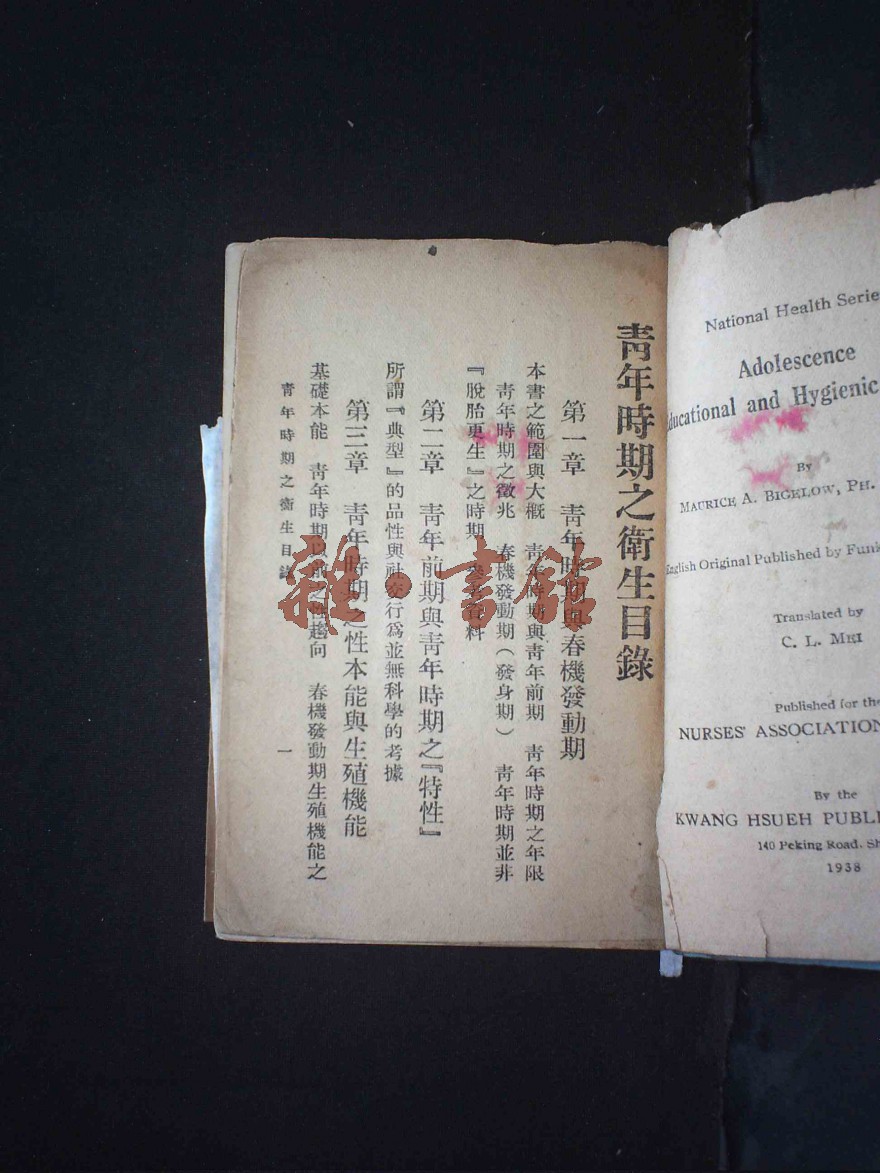 National Health Serie
Adolescence
ducational and Hygienic
By
MAURICE A. BIGELOW, PH.
English Original Published by Funk
Translated by
C. L. MEI
Published for the
NURSES' ASSOCIATION
By the
KWANG HSUEH PUBL
140 Peking Road, Sh
1938
靑年時期之衛生目錄
第一章 靑年時期與春機發動期
本書之範圍與大概 靑年時期與靑年前期 靑年時期之年限
靑年時期之徵兆 春機發動期(發身期) 靑年時期並非
『脫胎更生』之時期 參考資料
第二章 靑年前期與靑年時期之『特性』
所謂『典型』的品性與社交行爲並無科學的考據
第三章 靑年時期之性本能與生殖機能
基礎本能 靑年時期以前之性趨向 春機發動期生殖機能之
靑年時期之衛生目錄
一
雜·書館